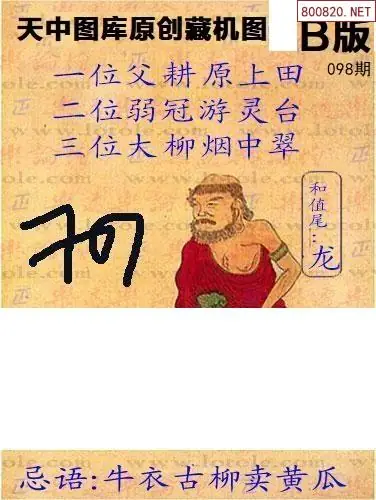 800820.NET
天中图库原创藏机图 B版
098期
一位父耕原上田
二位弱冠游灵台
三位大柳烟中翠
和值尾:龙
707
www.lotole.com
忌语:牛衣古柳卖黄瓜